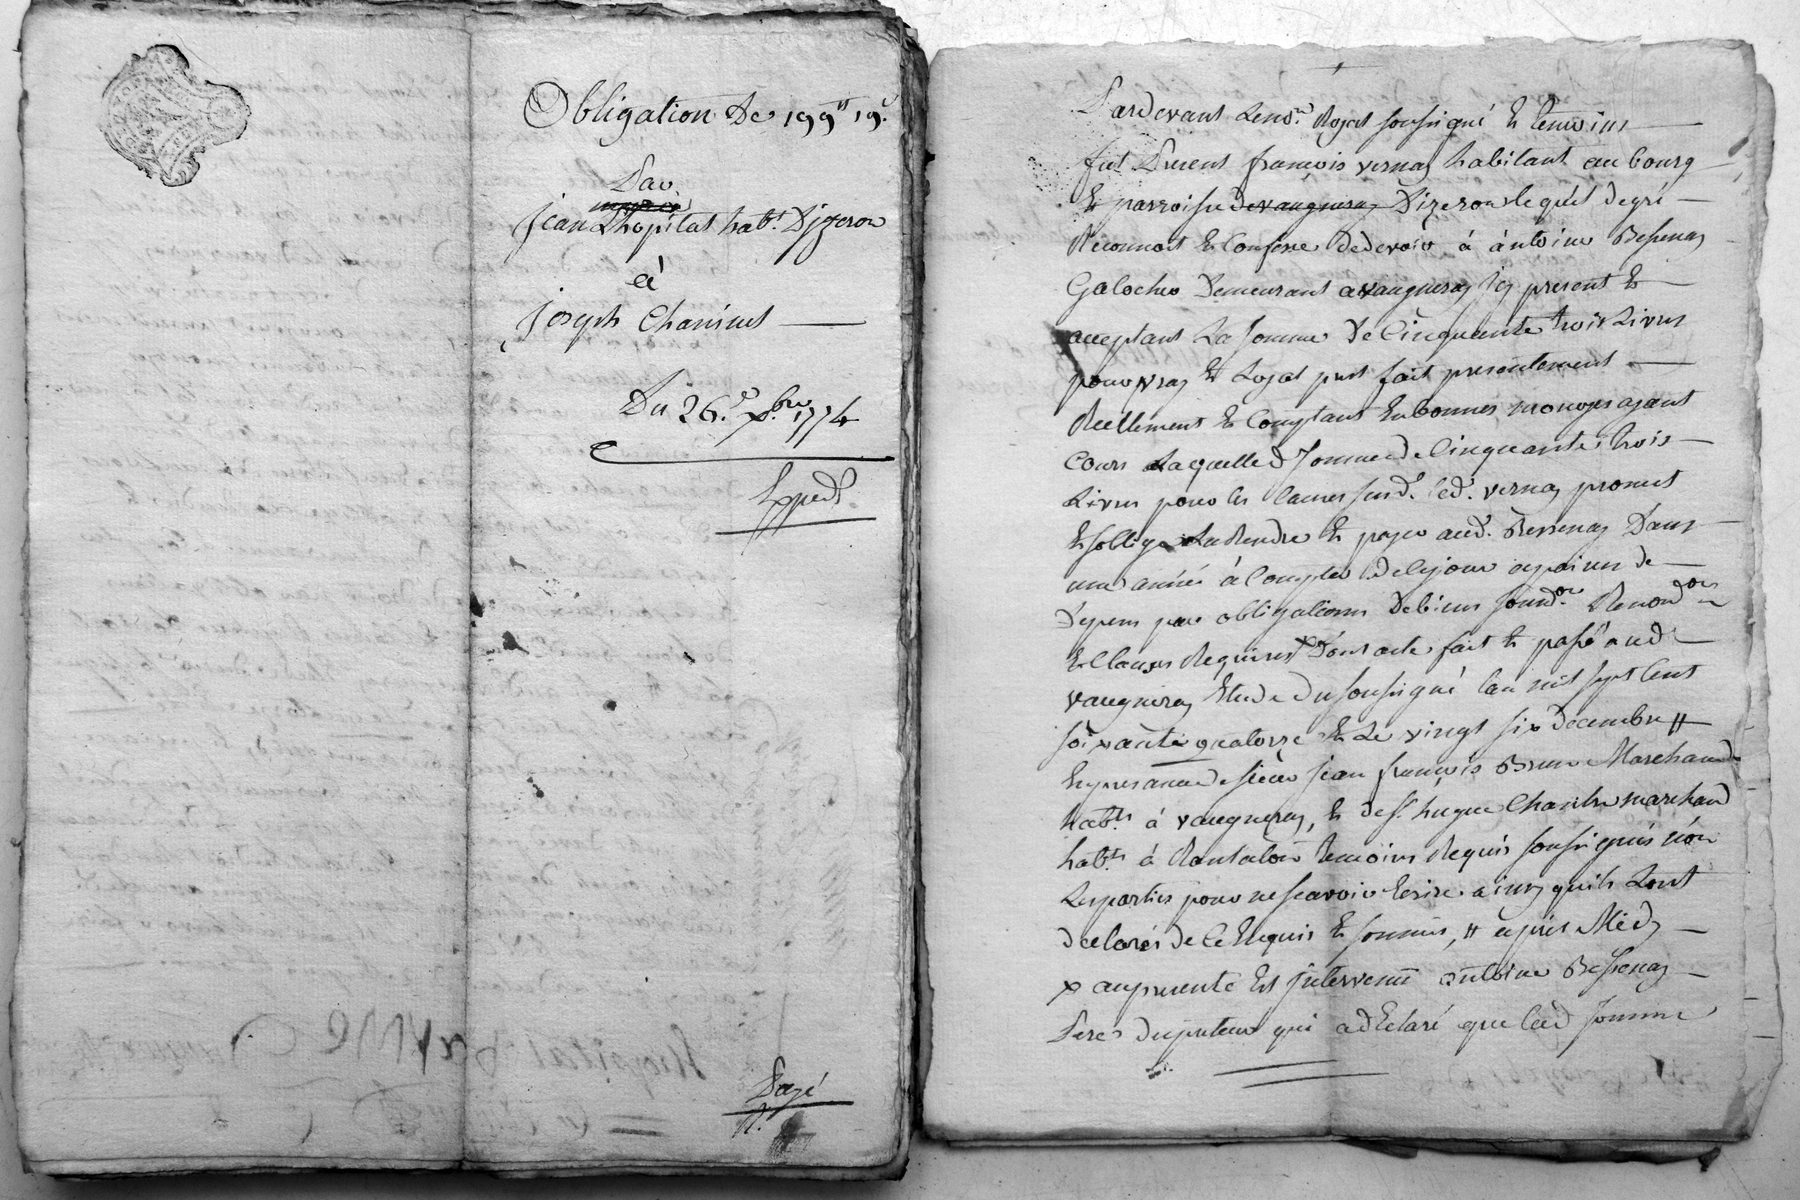 Obligation de 199ᵗᵗ 19ˢ.
Par
Jean Lhopital habᵗ. Dizeron
à
joseph Chanines
Du 26.ᵉ Xᵇʳᵉ 1774
Expedᵉ
Payé
Pardevant Le noʳᵉ. Royal soussigné Et temoins
fut Present françois vernay habitant au bourg
Et parroisse de vaugneray Dizeron lequel de gré
Reconnoit Et Confesse de devoir à àntoine Bessenay
Galoches Demeurant a vaugneray icy present Et
acceptant La somme De Cinquante trois Livres
pour vray Et Loyal prest fait presentement
Réellement Et Comptant En bonnes monoyes ayant
Cours Laquelle d somme de Cinquante trois
Livres pour les Causes susdᵉ. led. vernay promet
Et soblige La Rendre Et payer aud. Bessenay Dans
une année à Compter de Cejour a peines de
Depens par obligations De biens soumᵒⁿˢ. Renonᵒⁿˢ
Et Clauses Requises x Dont acte fait Et passé aud
vaugneray Etude du soussigné lan mil sept Cent
soixante quatorze Et Le vingt six decembre #
En presence de sieur jean françois Brun Marchand
habᵗ. à vaugneray, Et de sʳ. hugue Charistre marchand
habᵗ. à Rontalon temoins Requis soussignés non
Les parties pour ne scavoir Ecrire ainsy quils Lont
declarés de Ce Enquis Et sommés, # aprés Midy
x auxpresente Est jntervenu antoine Bessenay
Pere du preteur qui a dEclaré que lad somme